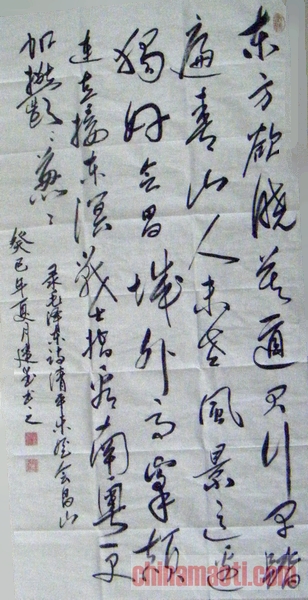 东方欲晓莫道君行早踏
遍青山人未老風景这边
獨好会昌城外高峯颠
连直接东溟战士指看南粤更
加鬱〻葱〻
录毛泽东词清平乐登会昌山
癸巳年夏月建书之
chinamaoti.com